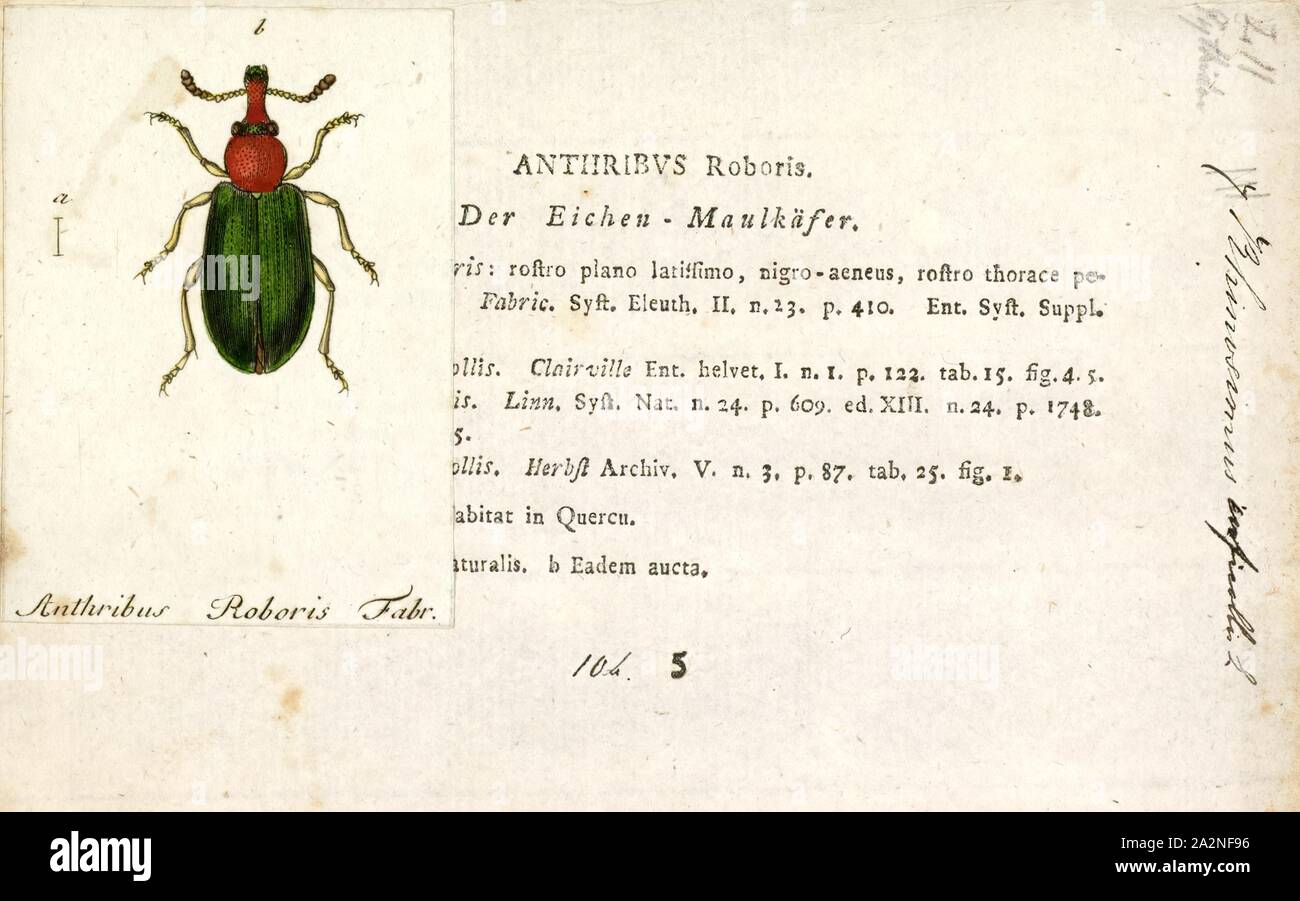 b
a
Anthribus Roboris Fabr.
ANTHRIBVS Roboris.
Der Eichen - Maulkäfer.
ris: roſtro plano latiſſimo, nigro-aeneus, roſtro thorace pe-
Fabric. Syſt. Eleuth. II. n. 23. p. 410. Ent. Syſt. Suppl.
ollis. Clairville Ent. helvet. I. n. 1. p. 122. tab. 15. fig. 4. 5.
is. Linn. Syſt. Nat. n. 24. p. 609. ed. XIII. n. 24. p. 1748.
5.
ollis. Herbſt Archiv. V. n. 3. p. 87. tab. 25. fig. 1.
abitat in Quercu.
aturalis. b Eadem aucta.
104. 5
Rhinosimus ruficollis L
alamy
alamy
Image ID: A2NF96
www.alamy.com